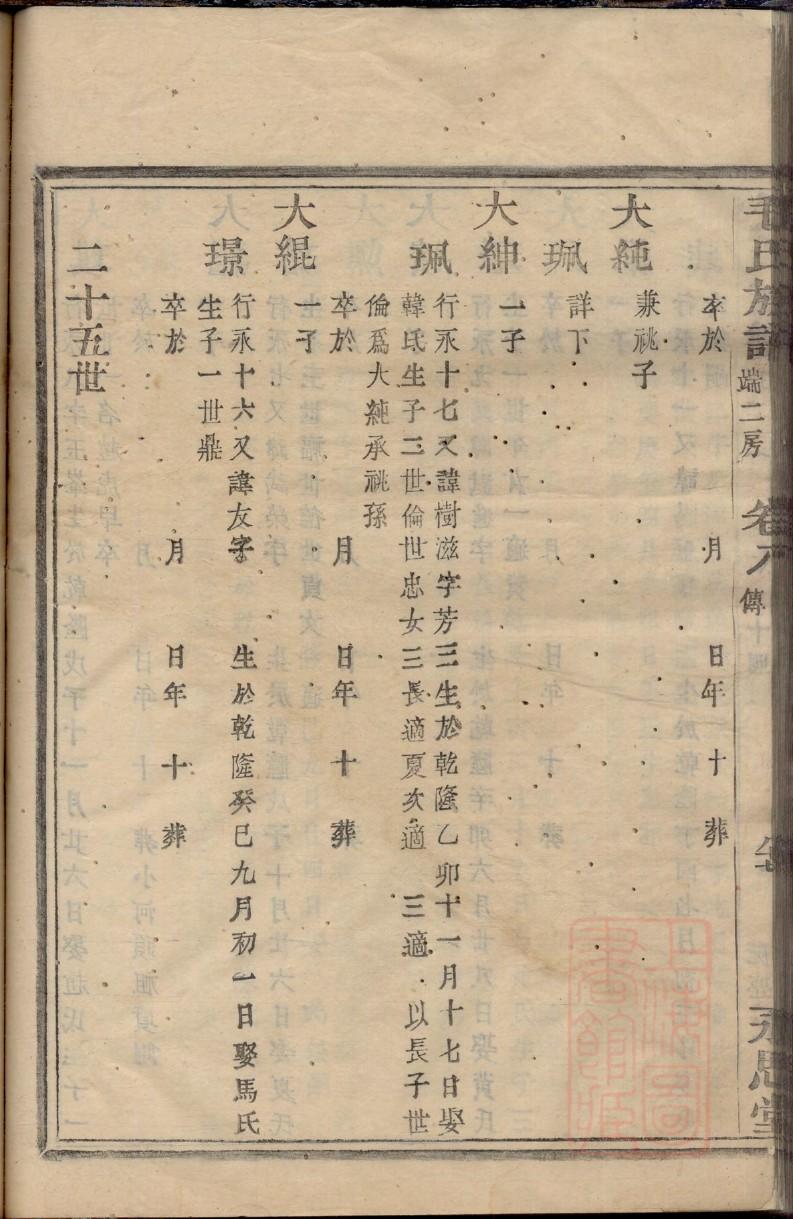 毛氏族譜 端二房 卷八 傳 永思堂
卒於 月 日年 十 葬
大純 兼祧子
珮 詳下
大紳 一子
珮 行永十七又諱樹滋字芳三生於乾隆乙卯十一月十七日娶
韓氏生子二世倫世忠女三長適夏次適 三適 以長子世
倫為大純承祧孫
卒於 月 日年 十 葬
大緄 一子
璟 行永十六又諱友字 生於乾隆癸巳九月初一日娶馬氏
生子一世鼎
卒於 月 日年 十 葬
二十五世